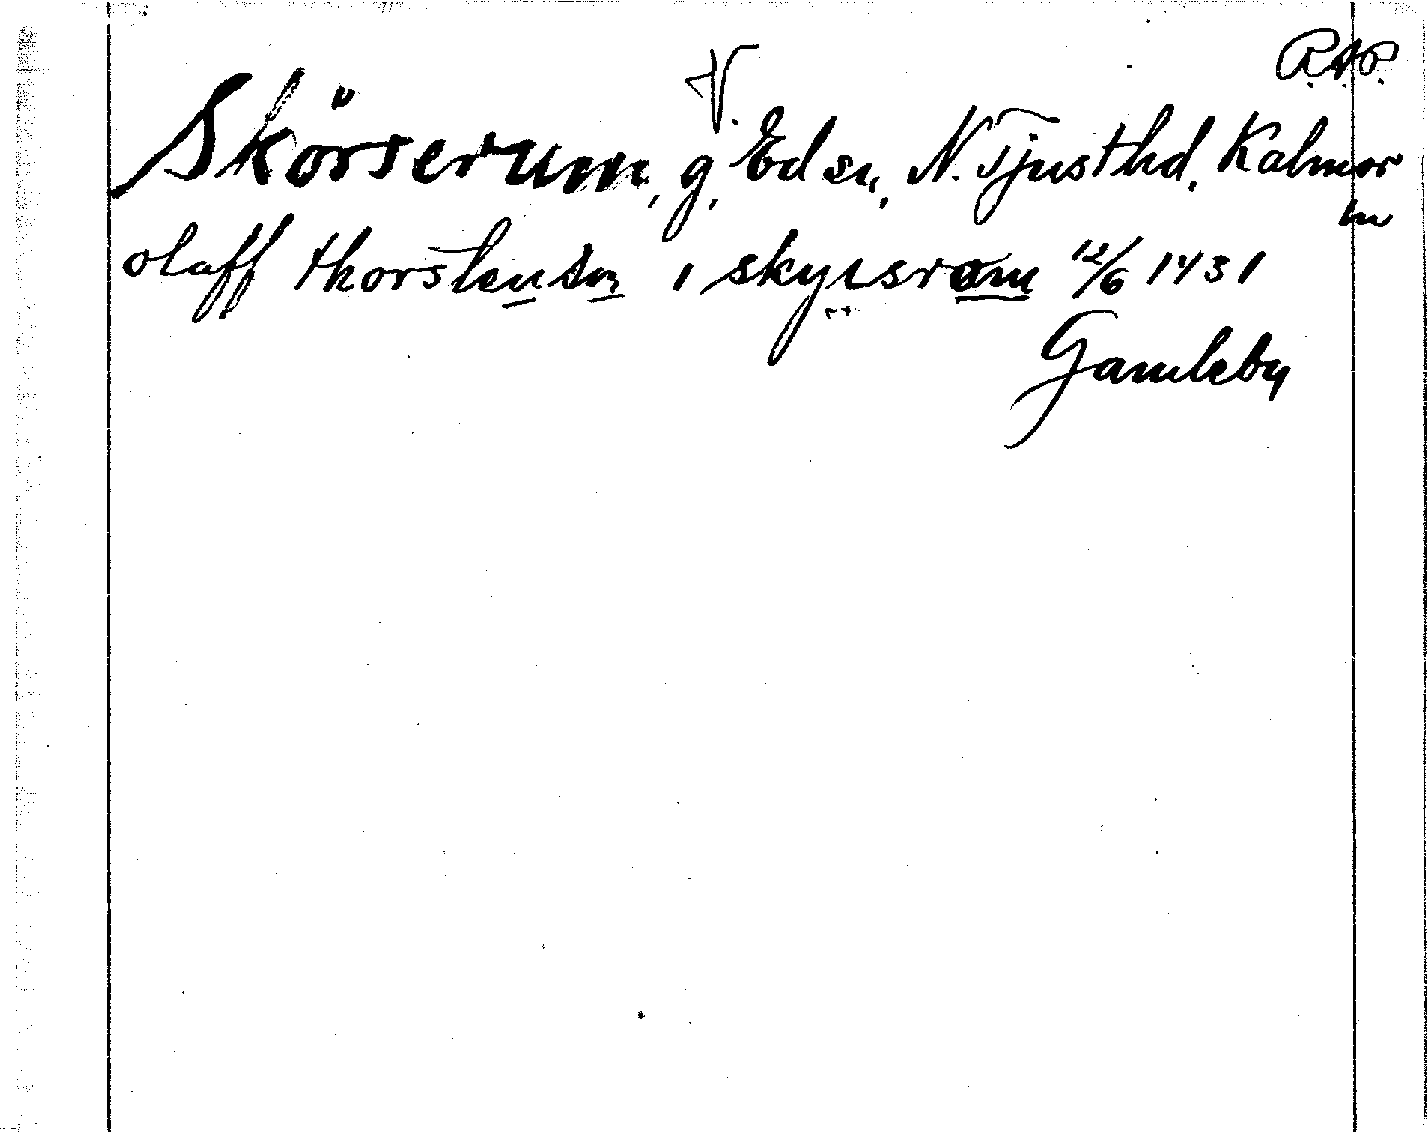 R.A.P.
Skörserum, g. V. Ed sn, N. Tjusthd, Kalmar
ln
olaff thorstenson i skyrsrom 12/6 1431
Gamleby